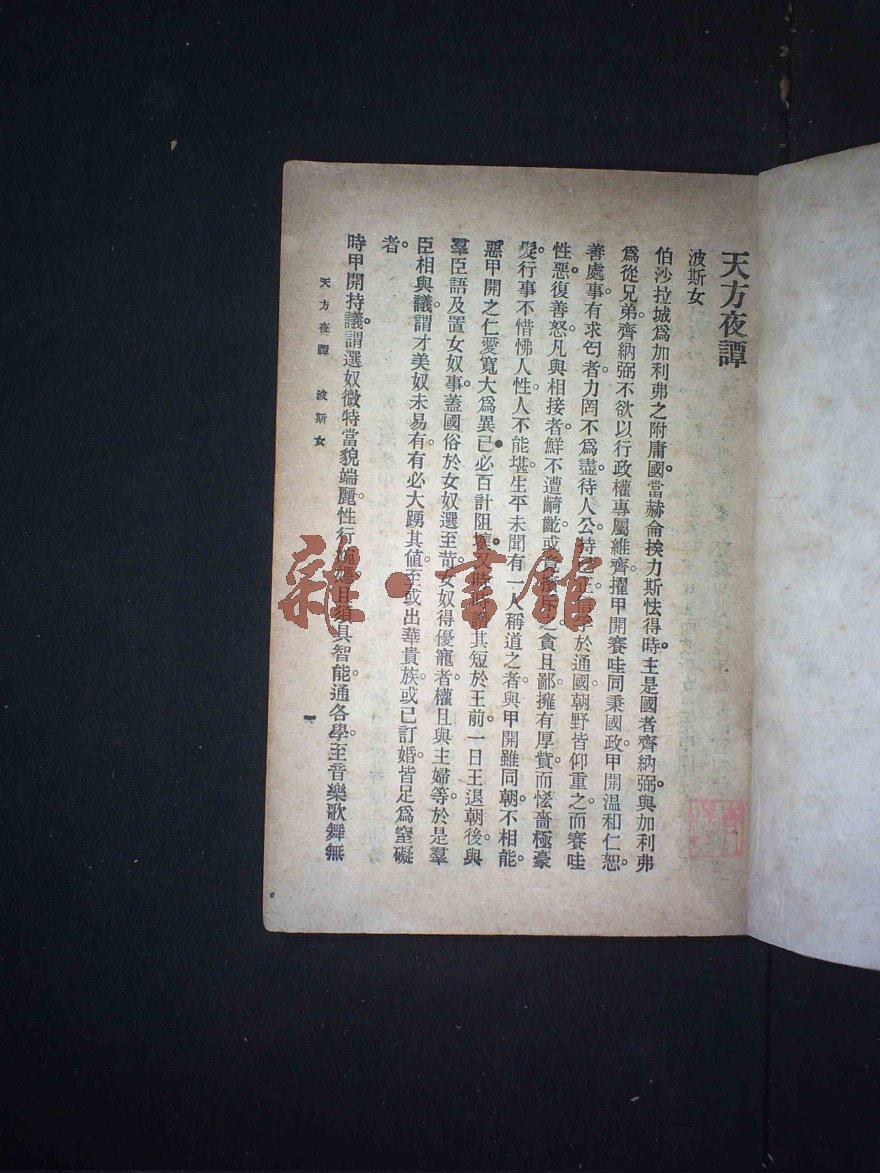 天方夜譚
波斯女
伯沙拉城爲加利弗之附庸國。當赫侖挨力斯怯得時。主是國者齊納弼。與加利弗
爲從兄弟。齊納弼不欲以行政權專屬維齊。擢甲開賽哇同秉國政。甲開溫和仁恕。
善處事。有求匄者。力罔不爲盡。待人公。持於通國。朝野皆仰重之。而賽哇
性惡復善怒。凡與相接者。鮮不遭齮齕。或之貪且鄙。擁有厚貲。而慳嗇極豪
髮。行事不惜怫人性。人不能堪。生平未聞有一人稱道之者。與甲開雖同朝。不相能。
惡甲開之仁愛寬大爲異己。必百計阻其短於王前。一日王退朝後。與
羣臣語及置女奴事。蓋國俗於女奴選至苛。女奴得優寵者。權且與主婦等。於是羣
臣相與議。謂才美奴未易有。有必大踴其値。至或出華貴族。或已訂婚。皆足爲窒礙
者。
時甲開持議。謂選奴微特當貌端麗。性行且須具智能。通各學。至音樂歌舞無
天方夜譚 波斯女
一
雜·書館